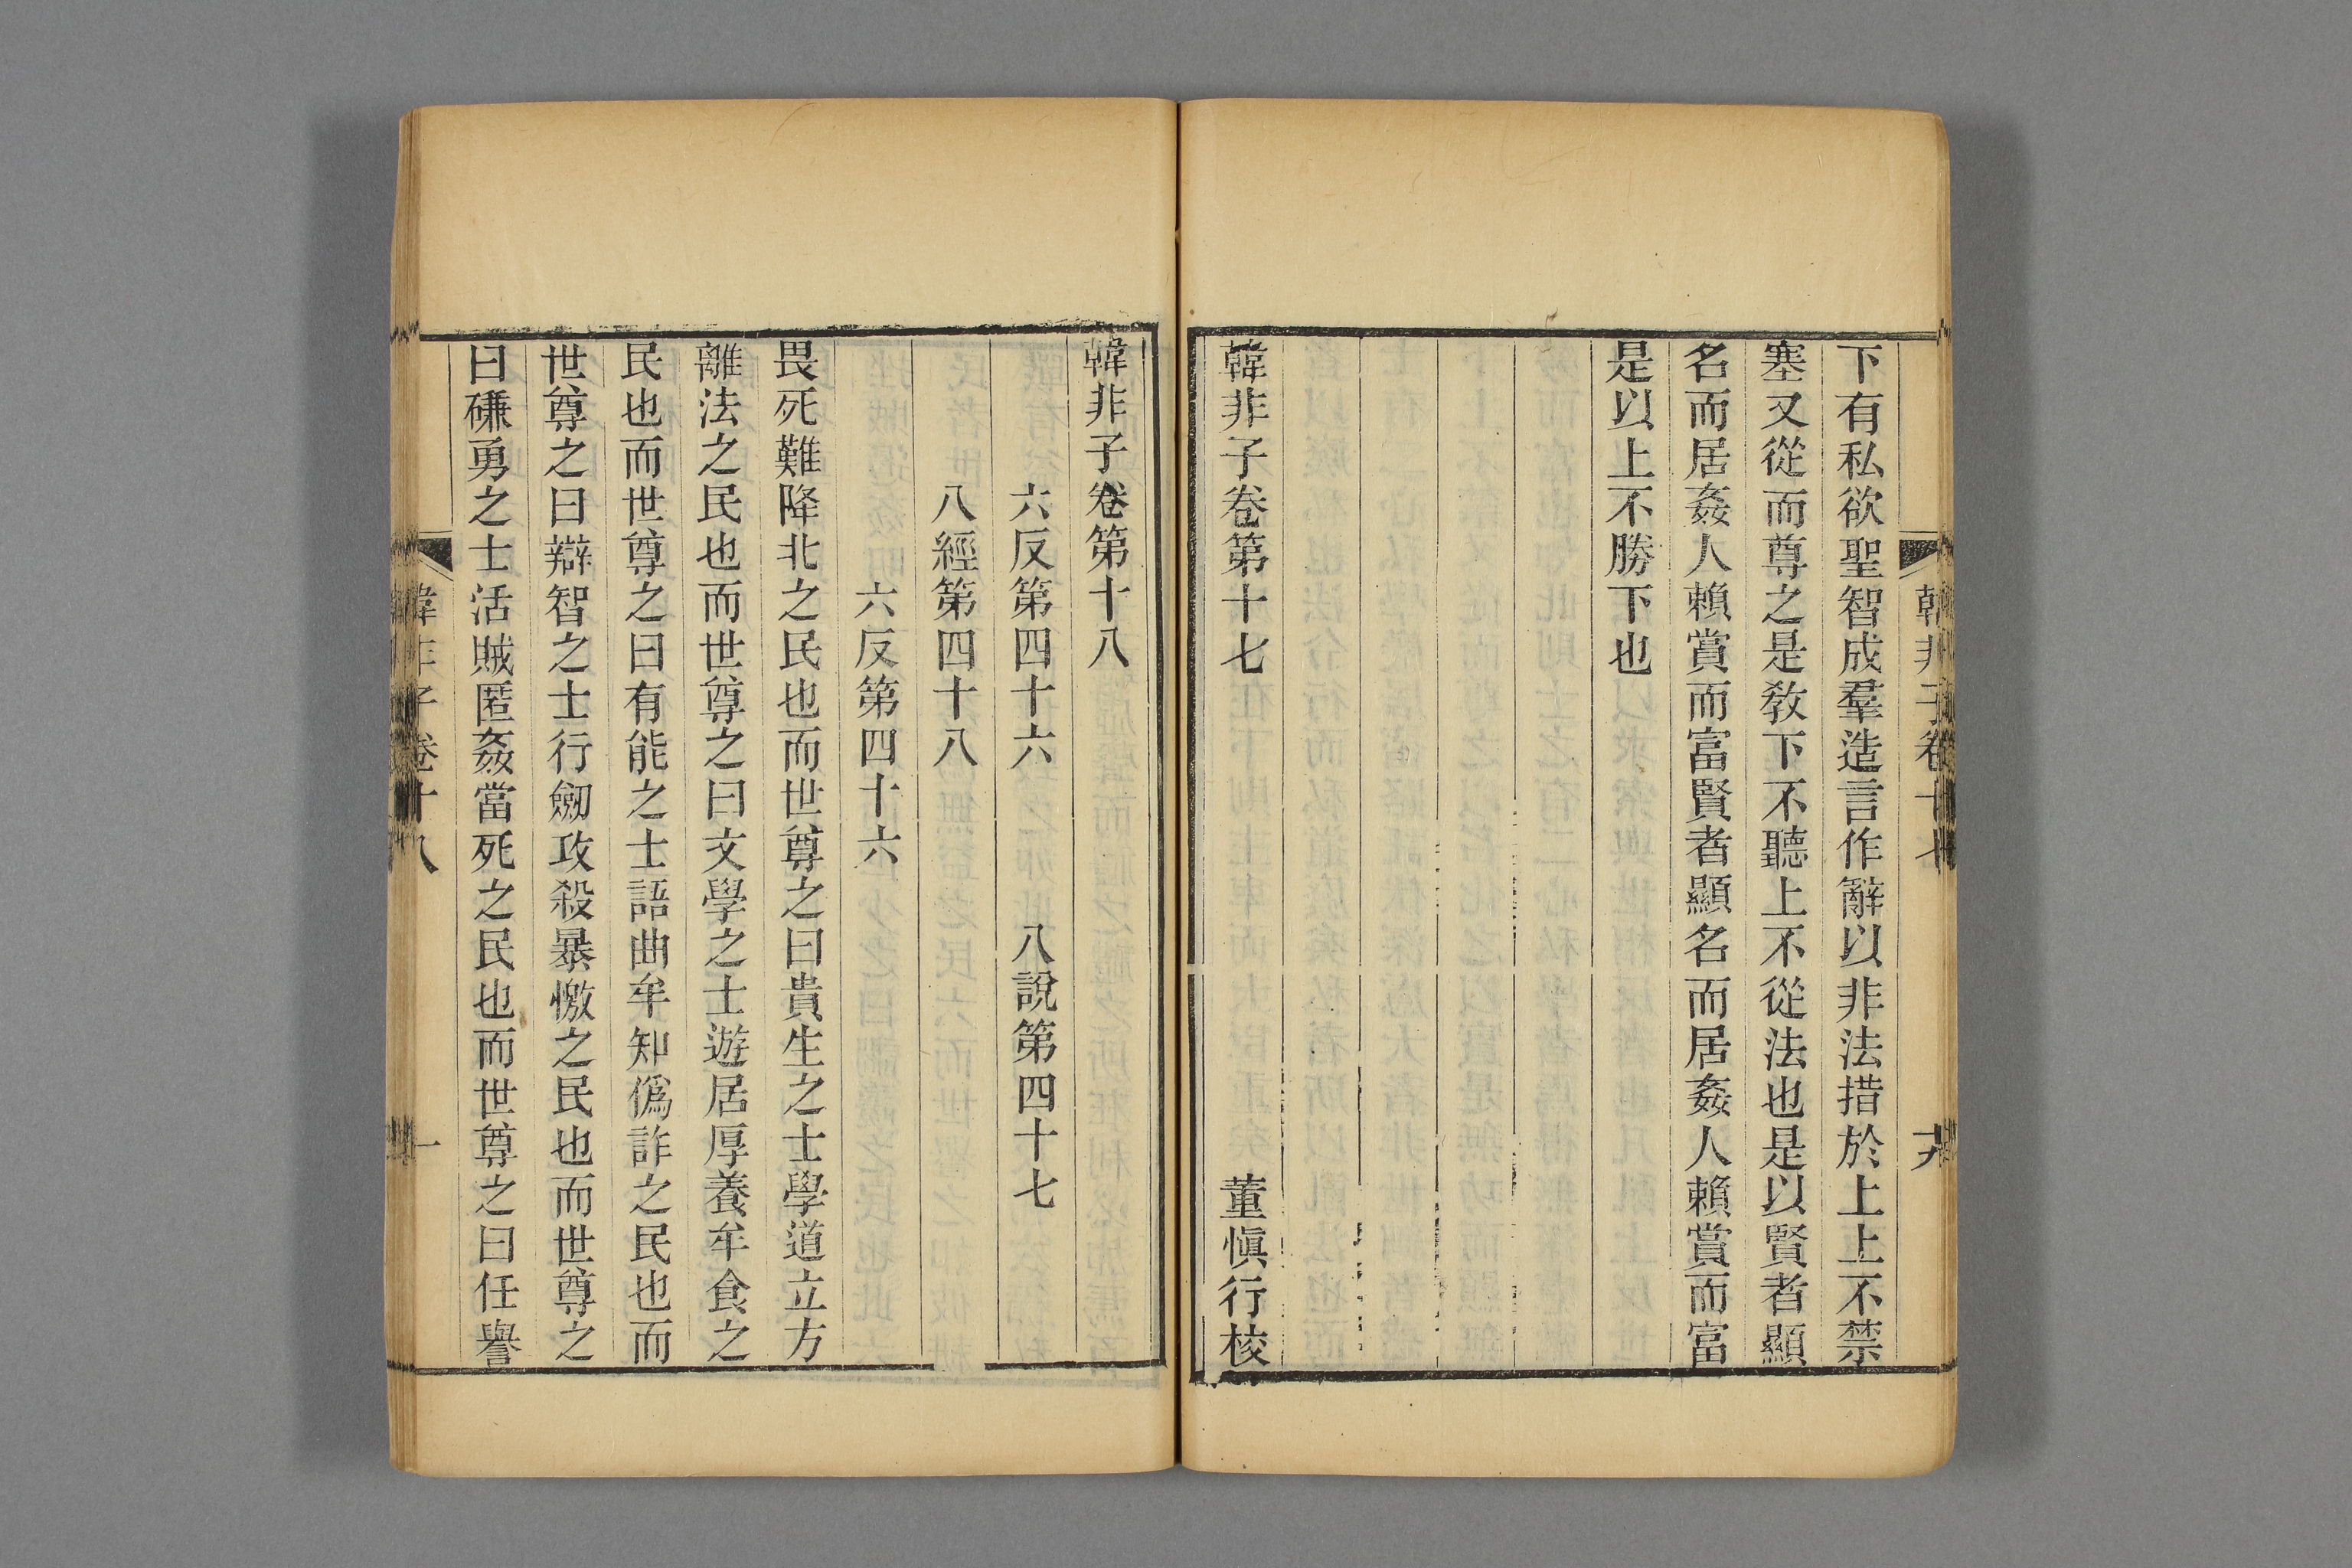 韓非子卷十七
十九
下有私欲聖智成羣造言作辭以非法措於上上不禁
塞又從而尊之是敎下不聽上不從法也是以賢者顯
名而居姦人賴賞而富賢者顯名而居姦人賴賞而富
是以上不勝下也
韓非子卷第十七
董愼行校
韓非子卷第十八
六反第四十六
八說第四十七
八經第四十八
六反第四十六
畏死難降北之民也而世尊之曰貴生之士學道立方
離法之民也而世尊之曰文學之士遊居厚養牟食之
民也而世尊之曰有能之士語曲牟知僞詐之民也而
世尊之曰辯智之士行劒攻殺暴憿之民也而世尊之
曰磏勇之士活賊匿姦當死之民也而世尊之曰任譽
韓非子卷十八
一